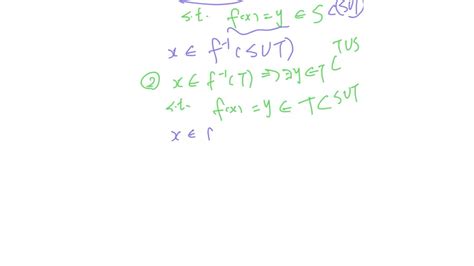 s.t. f(x) = y ∈ S ⊂(SUT)
x ∈ f⁻¹(SUT)
② x ∈ f⁻¹(T) ⇒ ∃y∈T ⊂ TUS
s.t. f(x) = y ∈ T ⊂ SUT
x ∈